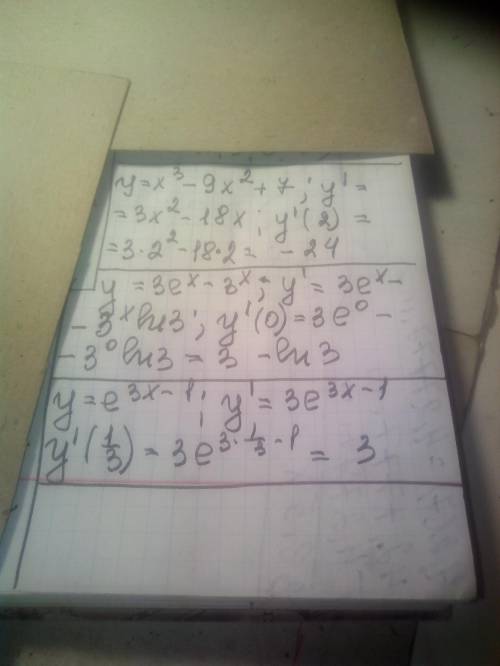 y = x³ - 9x² + 7 ; y' =
= 3x² - 18x ; y'(2) =
= 3·2² - 18·2 = - 24
y = 3eˣ - 3ˣ ; y' = 3eˣ -
- 3ˣ ln3 ; y'(0) = 3e⁰ -
- 3⁰ ln3 = 3 - ln3
y = e^{3x-1} ; y' = 3e^{3x-1}
y'(1/3) = 3e^{3·1/3-1} = 3